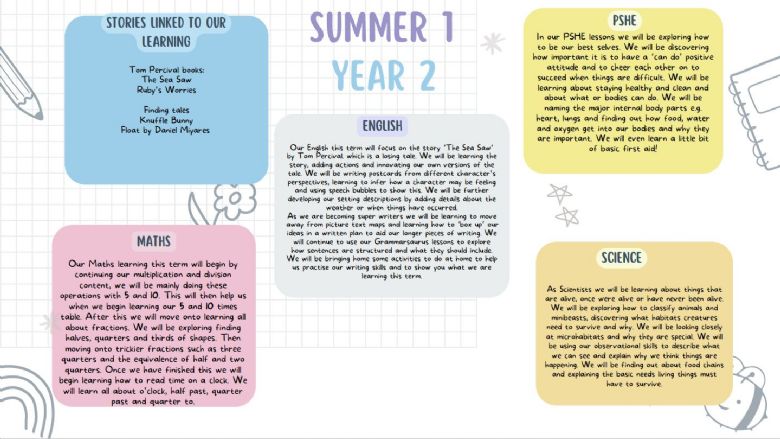 STORIES LINKED TO OUR
LEARNING
Tom Percival books:
The Sea Saw
Ruby's Worries
Finding tales
Knuffle Bunny
Float by Daniel Miyares
SUMMER 1
YEAR 2
ENGLISH
Our English this term will focus on the story 'The Sea Saw'
by Tom Percival which is a losing tale. We will be learning the
story, adding actions and innovating our own versions of the
tale. We will be writing postcards from different character's
perspectives, learning to infer how a character may be feeling
and using speech bubbles to show this. We will be further
developing our setting descriptions by adding details about the
weather or when things have occurred.
As we are becoming super writers we will be learning to move
away from picture text maps and learning how to 'box up' our
ideas in a written plan to aid our longer pieces of writing. We
will continue to use our Grammarsaurus lessons to explore
how sentences are structured and what they should include.
We will be bringing home some activities to do at home to help
us practise our writing skills and to show you what we are
learning this term.
PSHE
In our PSHE lessons we will be exploring how
to be our best selves. We will be discovering
how important it is to have a 'can do' positive
attitude and to cheer each other on to
succeed when things are difficult. We will be
learning about staying healthy and clean and
about what or bodies can do. We will be
naming the major internal body parts e.g.
heart, lungs and finding out how food, water
and oxygen get into our bodies and why they
are important. We will even learn a little bit
of basic first aid!
MATHS
Our Maths learning this term will begin by
continuing our multiplication and division
content, we will be mainly doing these
operations with 5 and 10. This will then help us
when we begin learning our 5 and 10 times
table. After this we will move onto learning all
about fractions. We will be exploring finding
halves, quarters and thirds of shapes. Then
moving onto trickier fractions such as three
quarters and the equivalence of half and two
quarters. Once we have finished this we will
begin learning how to read time on a clock. We
will learn all about o'clock, half past, quarter
past and quarter to.
SCIENCE
As Scientists we will be learning about things that
are alive, once were alive or have never been alive.
We will be exploring how to classify animals and
minibeasts, discovering what habitats creatures
need to survive and why. We will be looking closely
at microhabitats and why they are special. We will
be using our observational skills to describe what
we can see and explain why we think things are
happening. We will be finding out about food chains
and explaining the basic needs living things must
have to survive.